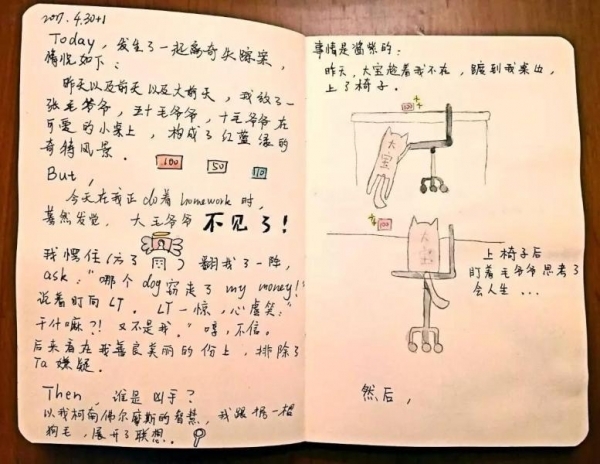 2017.4.30+1
Today, 发生了一起离奇失踪案,
情况如下:
昨天以及前天以及大前天,我放了一
张毛爷爷,五十毛爷爷,十毛爷爷在
可爱的小桌上,构成了红蓝绿的
奇特风景.
100 50 10
But,
今天在我正do着homework时,
蓦然发觉,大毛爷爷不见了!
我愣住(方了 )翻找了一阵,
ask:"哪个dog窃走了my money!"
说着盯向LT. LT一惊,心虚笑:"
干什嘛?!又不是我." 哼,不信。
后来看在我善良美丽的份上,排除了
Ta嫌疑.
Then,谁是凶手?
以我柯南佛尔摩斯的智慧,我跟据一根
狗毛,展开了联想.
事情是酱紫的:
昨天,大宝趁着我不在,踱到我桌边,
上了椅子.
100
大宝
100
大宝
上椅子后
盯着毛爷爷思考了
会人生...
然后,